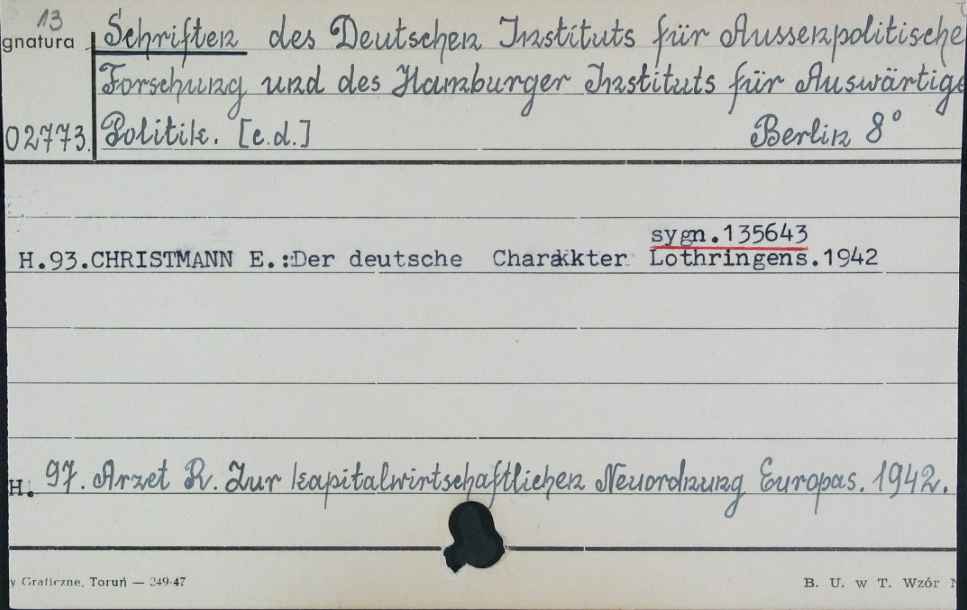 13
gnatura Schriften des Deutschen Instituts für Aussenpolitische
Forschung und des Hamburger Instituts für Auswärtige
02773. Politik. [c.d.] Berlin 8°
sygn.135643
H.93.CHRISTMANN E.:Der deutsche Charakter Lothringens.1942
H. 97. Arzet R. Zur kapitalwirtschaftlichen Neuordnung Europas. 1942.
y Graficzne, Toruń — 249-47
B. U. w T. Wzór